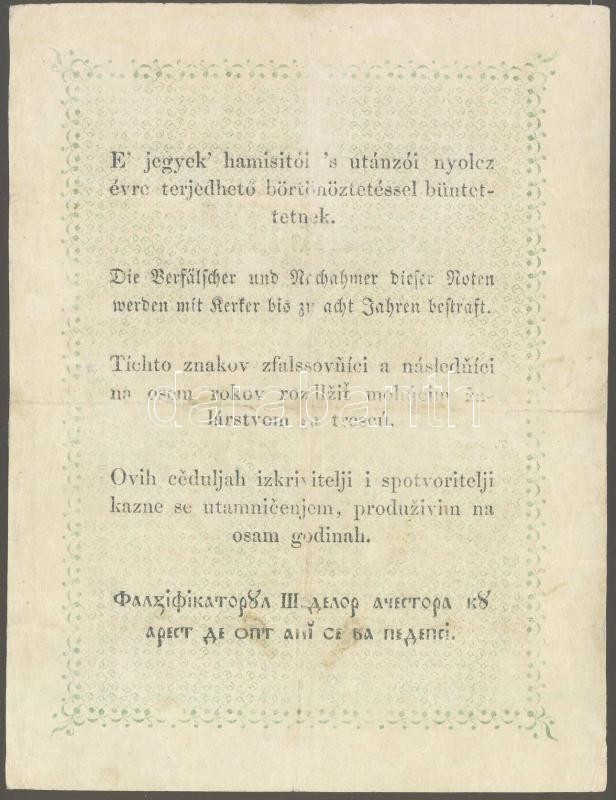 E' jegyek' hamisitói 's utánzói nyolcz
évre terjedhető börtönöztetéssel büntet-
tetnek.
Die Verfälscher und Nachahmer dieser Noten
werden mit Kerker bis zu acht Jahren bestraft.
Tíchto znakov zfalssovňíci a následňíci
na osem rokov rozdlžiť mohúcim ža-
lárstvom sa trescú.
Ovih cěduljah izkrivitelji i spotvoritelji
kazne se utamničenjem, produživim na
osam godinah.
Фалꙁіфікаторꙋл Ш делор ачестора кꙋ
арест де опт anĭ се ва педепсі.
darabanth